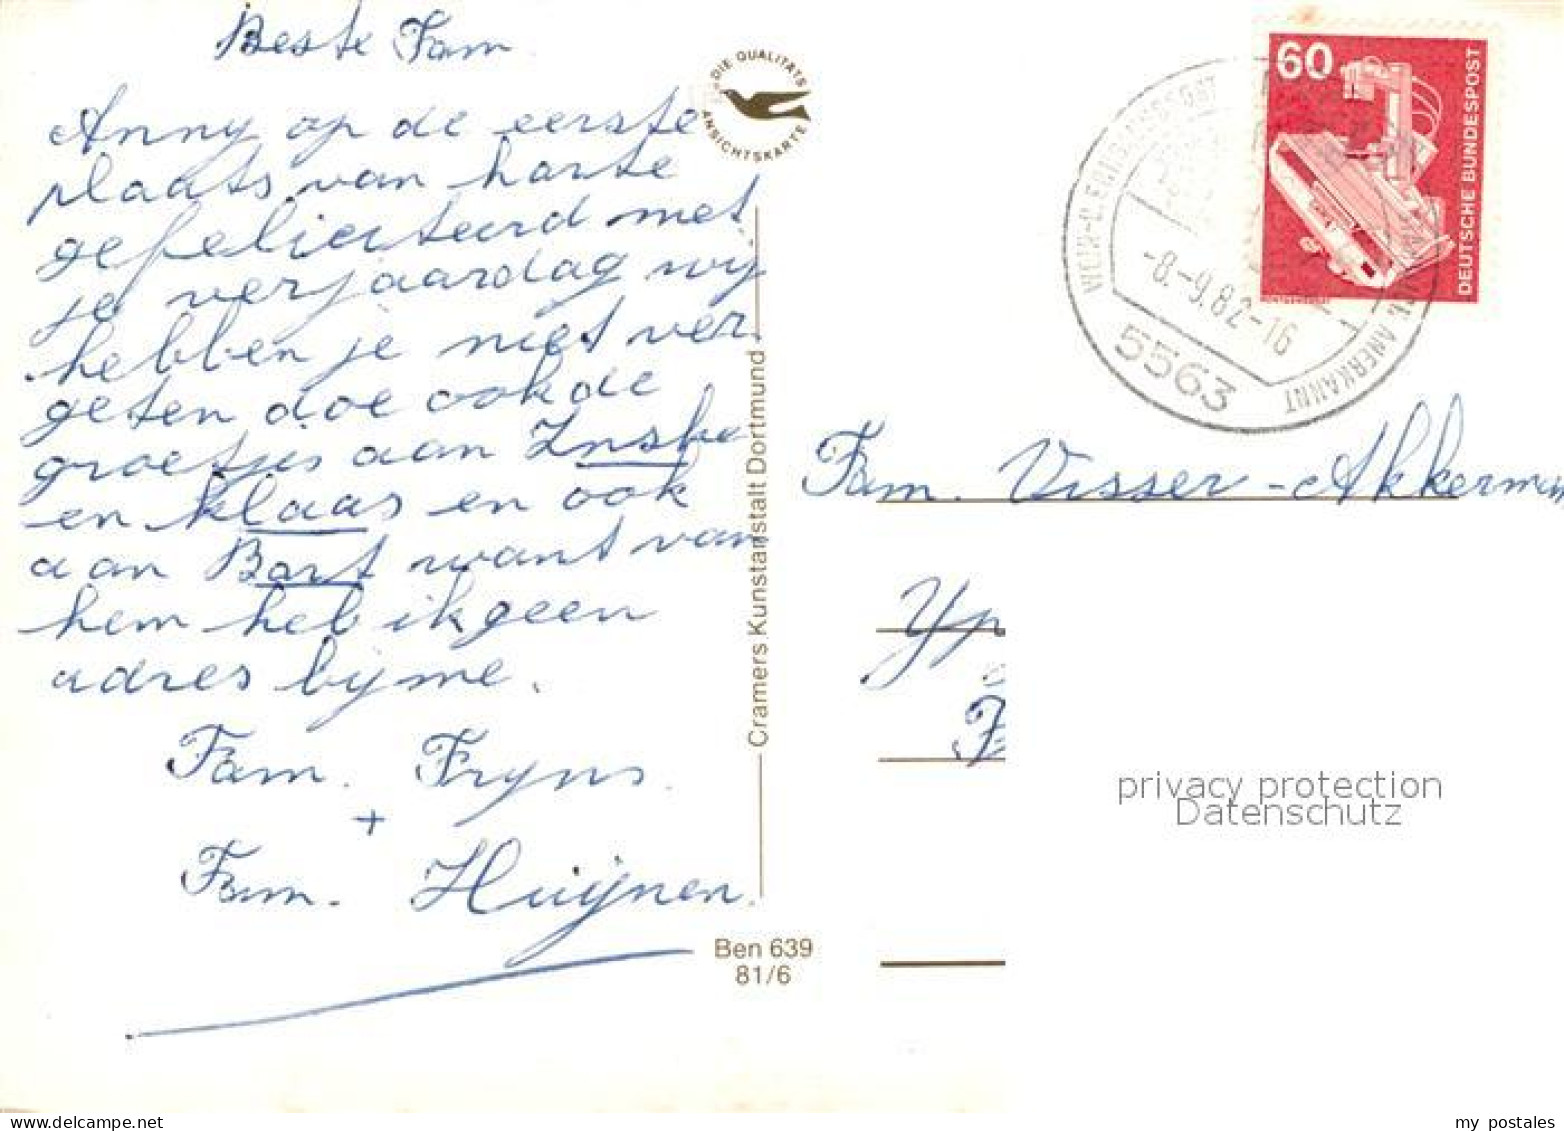 Beste Fam
Anny op de eerste
plaats van harte
gefeliciteerd met
je verjaardag wij
hebben je niet ver
geten doe ook de
groetjes aan Inske
en Klaas en ook
aan Bart want van
hem heb ik geen
adres bij me.
Fam. Fryns.
+
Fam. Huijnen.
DIE QUALITÄTS
ANSICHTSKARTE
Cramers Kunstanstalt Dortmund
Ben 639
81/6
60
DEUTSCHE BUNDESPOST
-8.-9.82-16
5563
ANERKANNT
Fam. Visser-Akkerman
Yp
privacy protection
Datenschutz
my postales